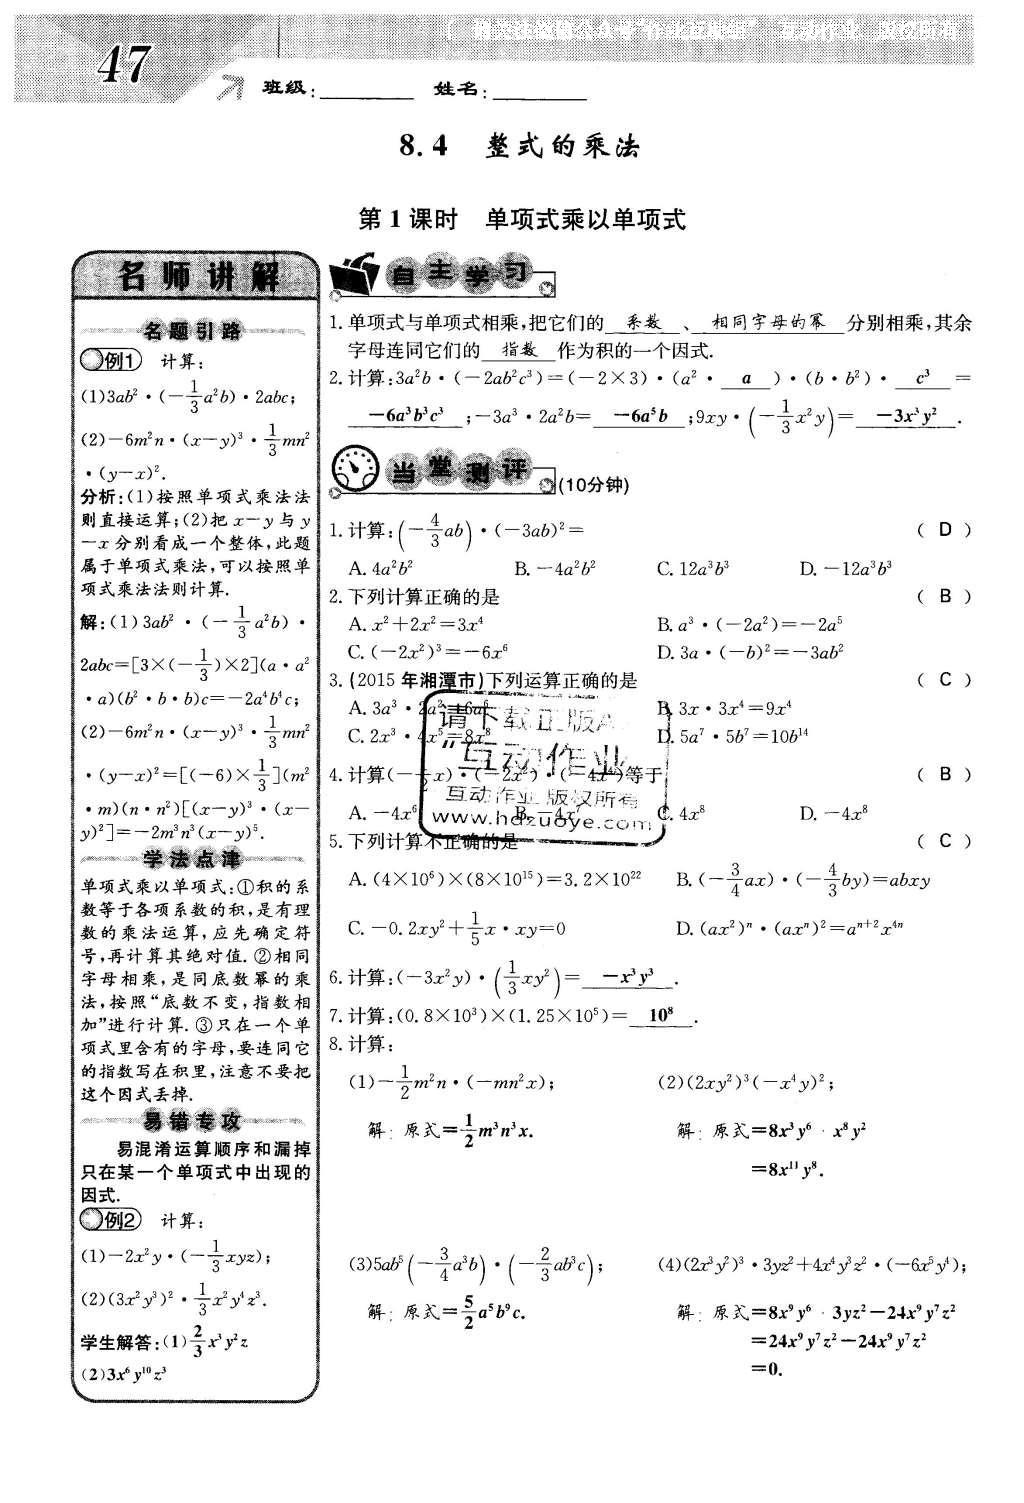 47
班级: 姓名:
8.4 整式的乘法
第1课时 单项式乘以单项式
名师讲解
名题引路
例1 计算:
(1)3ab²·(-1/3a²b)·2abc;
(2)-6m²n·(x-y)³·1/3mn²
·(y-x)².
分析:(1)按照单项式乘法法
则直接运算;(2)把x-y与y
-x分别看成一个整体,此题
属于单项式乘法,可以按照单
项式乘法法则计算.
解:(1)3ab²·(-1/3a²b)·
2abc=[3×(-1/3)×2](a·a²
·a)(b²·b·b)c=-2a⁴b⁴c;
(2)-6m²n·(x-y)³·1/3mn²
·(y-x)²=[(-6)×1/3](m²
·m)(n·n²)[(x-y)³·(x-
y)²]=-2m³n³(x-y)⁵.
学法点津
单项式乘以单项式:①积的系
数等于各项系数的积,是有理
数的乘法运算,应先确定符
号,再计算其绝对值.②相同
字母相乘,是同底数幂的乘
法,按照“底数不变,指数相
加”进行计算.③只在一个单
项式里含有的字母,要连同它
的指数写在积里,注意不要把
这个因式丢掉.
易错专攻
易混淆运算顺序和漏掉
只在某一个单项式中出现的
因式.
例2 计算:
(1)-2x²y·(-1/3xyz);
(2)(3x²y³)²·1/3x²y⁴z³.
学生解答:(1)2/3x³y²z
(2)3x⁶y¹⁰z³
自主学习
1.单项式与单项式相乘,把它们的 系数 、 相同字母的幂 分别相乘,其余
字母连同它们的 指数 作为积的一个因式.
2.计算:3a²b·(-2ab²c³)=(-2×3)·(a²· a )·(b·b²)· c³ =
-6a³b³c³ ;-3a³·2a²b= -6a⁵b ;9xy·(-1/3x²y)= -3x³y² .
当堂测评 (10分钟)
1.计算:(-4/3ab)·(-3ab)²= ( D )
A. 4a²b² B. -4a²b² C. 12a³b³ D. -12a³b³
2.下列计算正确的是 ( B )
A. x²+2x²=3x⁴ B. a³·(-2a²)=-2a⁵
C. (-2x²)³=-6x⁶ D. 3a·(-b)²=-3ab²
3.(2015年湘潭市)下列运算正确的是 ( C )
A. 3a³·2a²=6a⁶ B. 3x·3x⁴=9x⁴
C. 2x³·4x⁵=8x⁸ D. 5a⁷·5b⁷=10b¹⁴
4.计算(-1/2x)·(-2x²)·(-4x⁴)等于 ( B )
A. -4x⁶ B. -4x⁷ C. 4x⁸ D. -4x⁸
请下载正版A
“互动作业
互动作业 版权所有
www.hdzuoye.com
5.下列计算不正确的是 ( C )
A. (4×10⁶)×(8×10¹⁵)=3.2×10²² B. (-3/4ax)·(-4/3by)=abxy
C. -0.2xy²+1/5x·xy=0 D. (ax²)ⁿ·(axⁿ)²=aⁿ⁺²x⁴ⁿ
6.计算:(-3x²y)·(1/3xy²)= -x³y³ .
7.计算:(0.8×10³)×(1.25×10⁵)= 10⁸ .
8.计算:
(1)-1/2m²n·(-mn²x); (2)(2xy²)³(-x⁴y)²;
解:原式=1/2m³n³x. 解:原式=8x³y⁶·x⁸y²
=8x¹¹y⁸.
(3)5ab⁵(-3/4a³b)·(-2/3ab³c); (4)(2x³y²)³·3yz²+4x⁴y³z²·(-6x⁵y⁴);
解:原式=5/2a⁵b⁹c. 解:原式=8x⁹y⁶·3yz²-24x⁹y⁷z²
=24x⁹y⁷z²-24x⁹y⁷z²
=0.